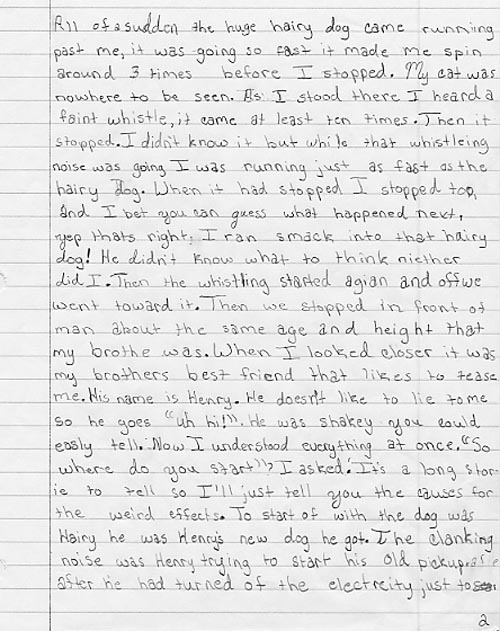 All of a sudden the huge hairy dog came running
past me, it was going so fast it made me spin
around 3 times before I stopped. My cat was
nowhere to be seen. As I stood there I heard a
faint whistle, it came at least ten times. Then it
stopped. I didn't know it but while that whistleing
noise was going I was running just as fast as the
hairy dog. When it had stopped I stopped too,
and I bet you can guess what happened next,
yep thats right; I ran smack into that hairy
dog! He didn't know what to think niether
did I. Then the whistling started agian and off we
went toward it. Then we stopped in front of
man about the same age and height that
my brothe was. When I looked closer it was
my brothers best friend that likes to tease
me. His name is Henry. He doesn't like to lie to me
so he goes "uh hi!". He was shakey you could
easly tell. Now I understood everything at once. "So
where do you start"? I asked. "It's a long stor-
ie to tell so I'll just tell you the causes for
the weird effects. To start of with the dog was
Hairy he was Henry's new dog he got. The clanking
noise was Henry trying to start his old pickup.
after he had turned of the electrcity just to
2